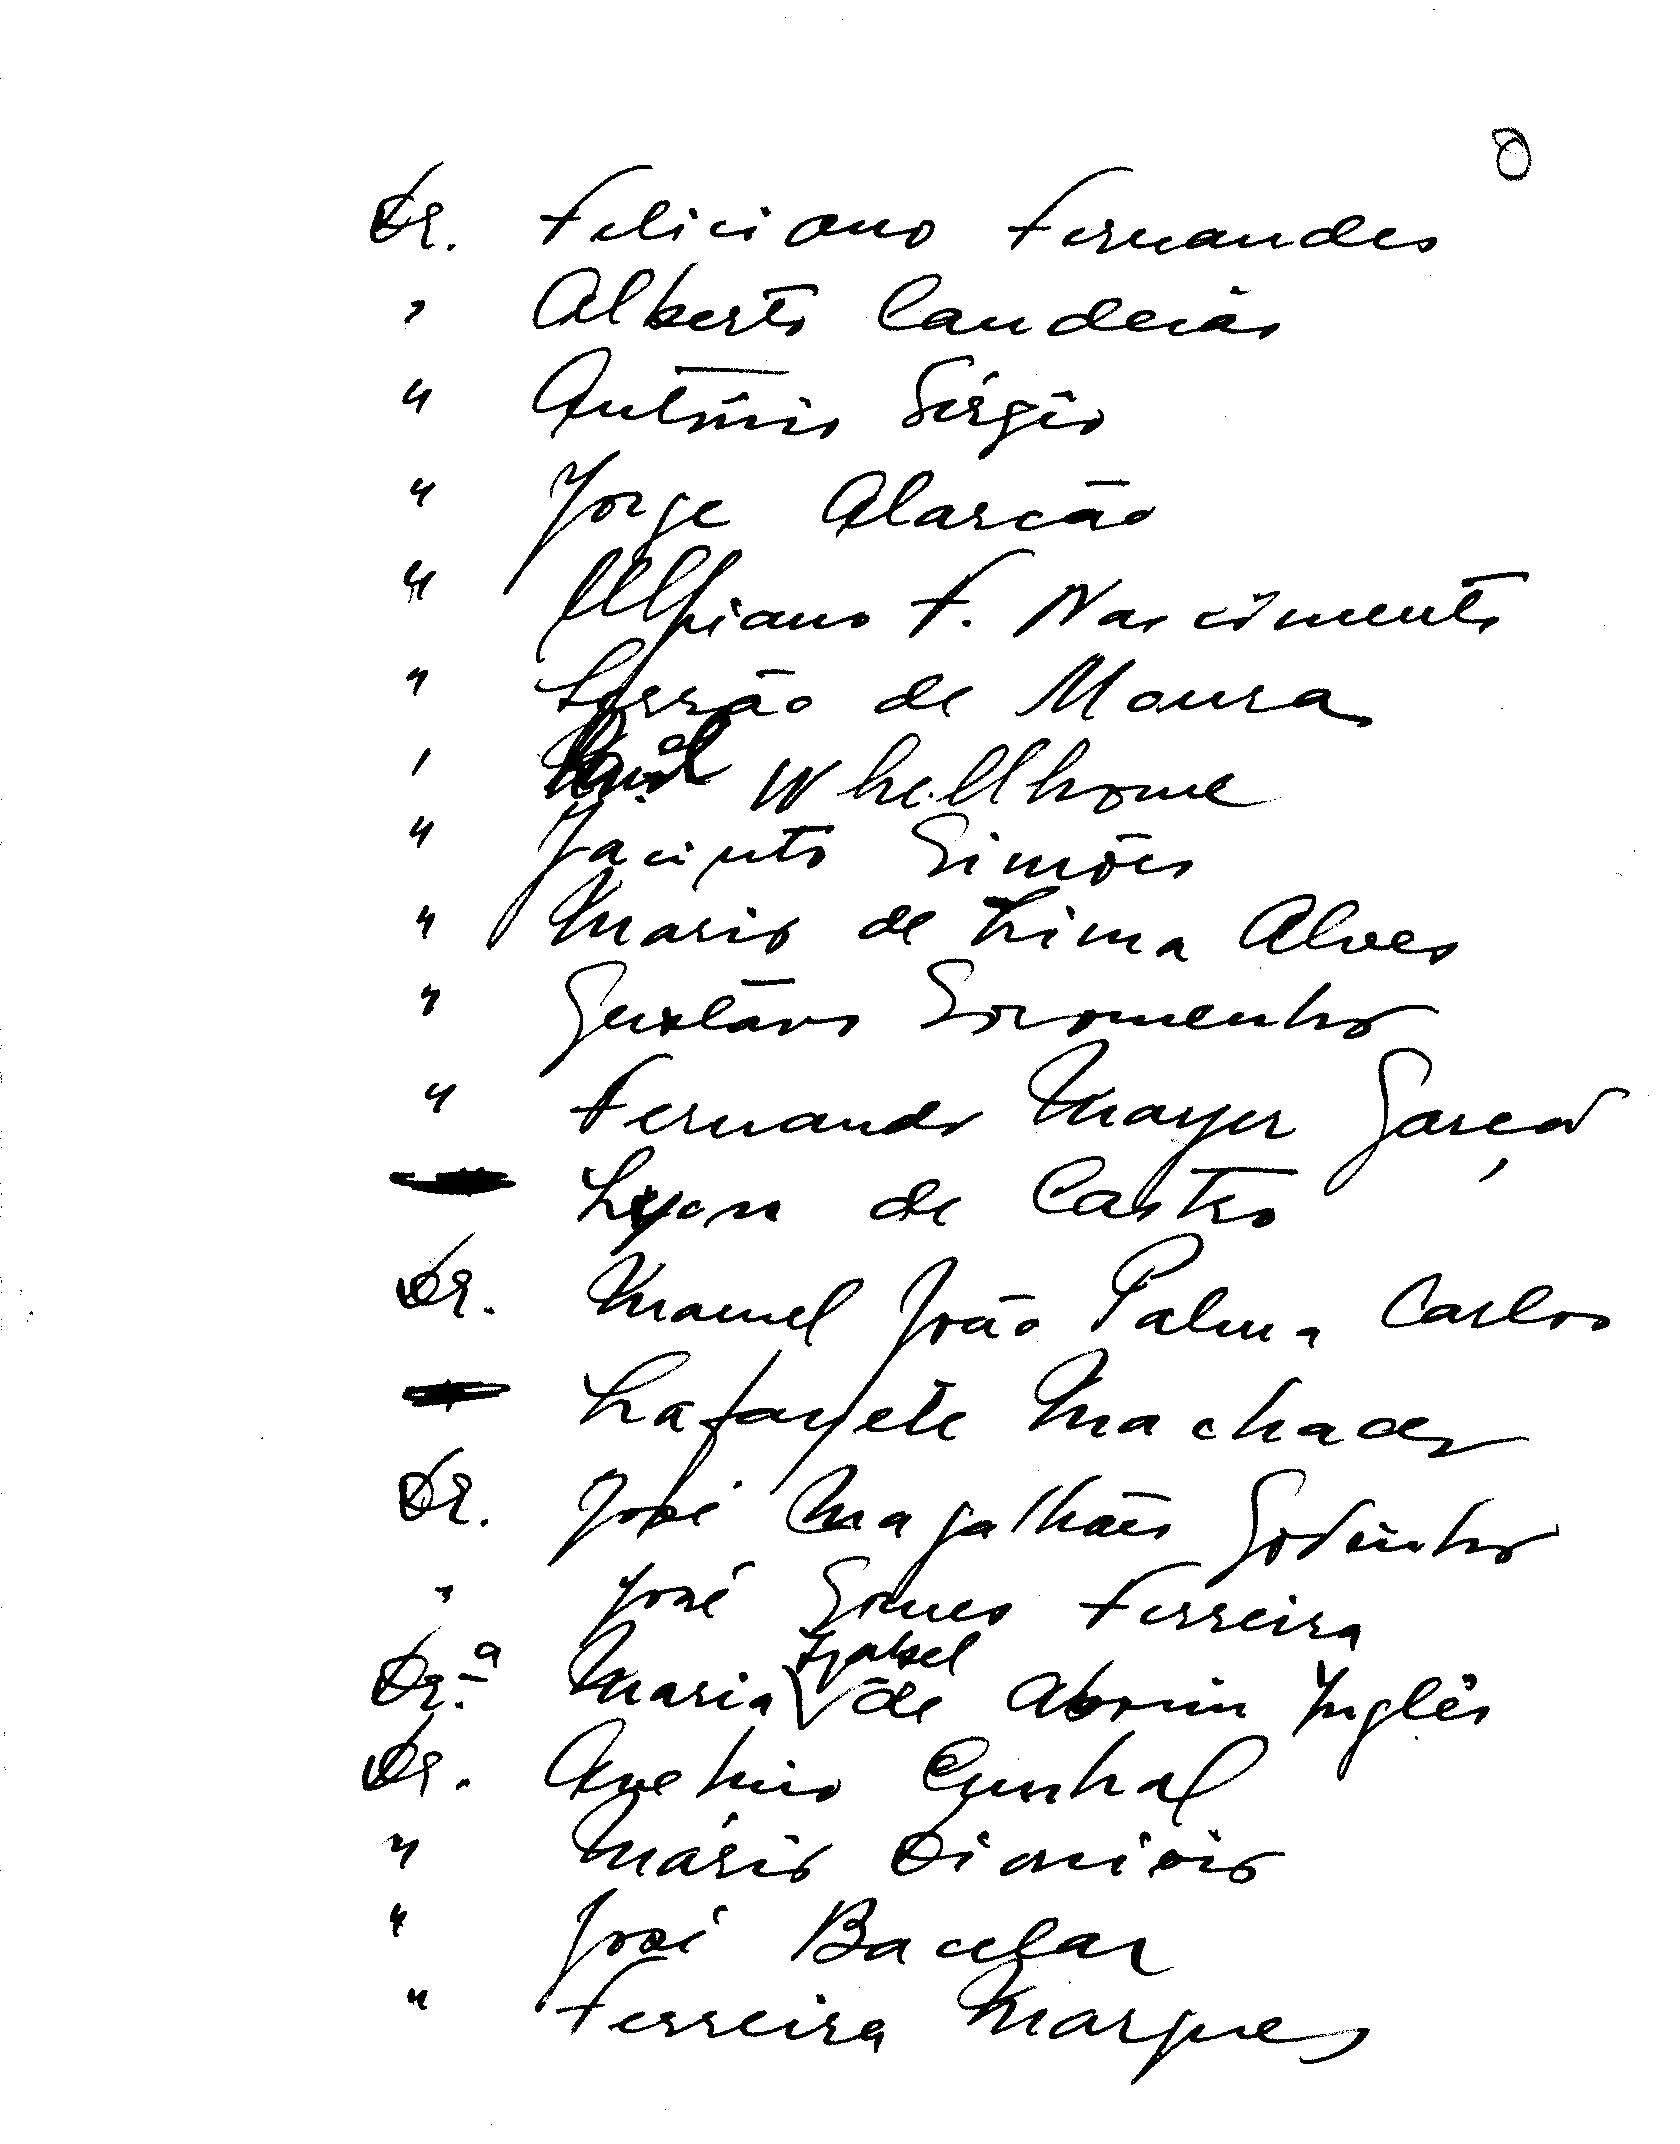 8
Dr. Feliciano Fernandes
" Alberto Candeias
" António Sérgio
" Jorge Alarcão
" Ulpiano F. Nascimento
" Serrão de Moura
" Whellhome
" Jacinto Simões
" Mario de Lima Alves
" Gustavo Soromenho
" Fernando Mayer Garção
Lyon de Castro
Dr. Manuel João Palma Carlos
Lafayete Machado
Dr. José Magalhães Godinho
" José Gomes Ferreira
Dr.ª Maria Izabel de Aboim Inglês
Dr. Avelino Cunhal
" Mário Dionisio
" José Bacelar
" Ferreira Marques